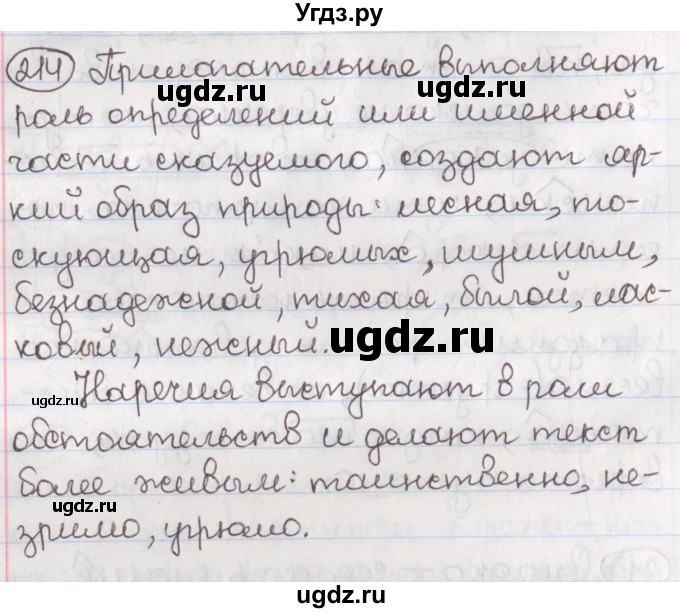 Угдз.ру
214 Прилагательные выполняют
роль определений или именной
части сказуемого, создают яр-
кий образ природы: лесная, то-
скующая, угрюмых, шумным,
безнадежной, тихая, былой, лас-
ковый, нежный.
Наречия выступают в роли
обстоятельств и делают текст
более живым: таинственно, не-
зримо, угрюмо.
ugdz.ru
ugdz.ru
ugdz.ru
ugdz.ru
ugdz.ru
ugdz.ru
ugdz.ru
ugdz.ru